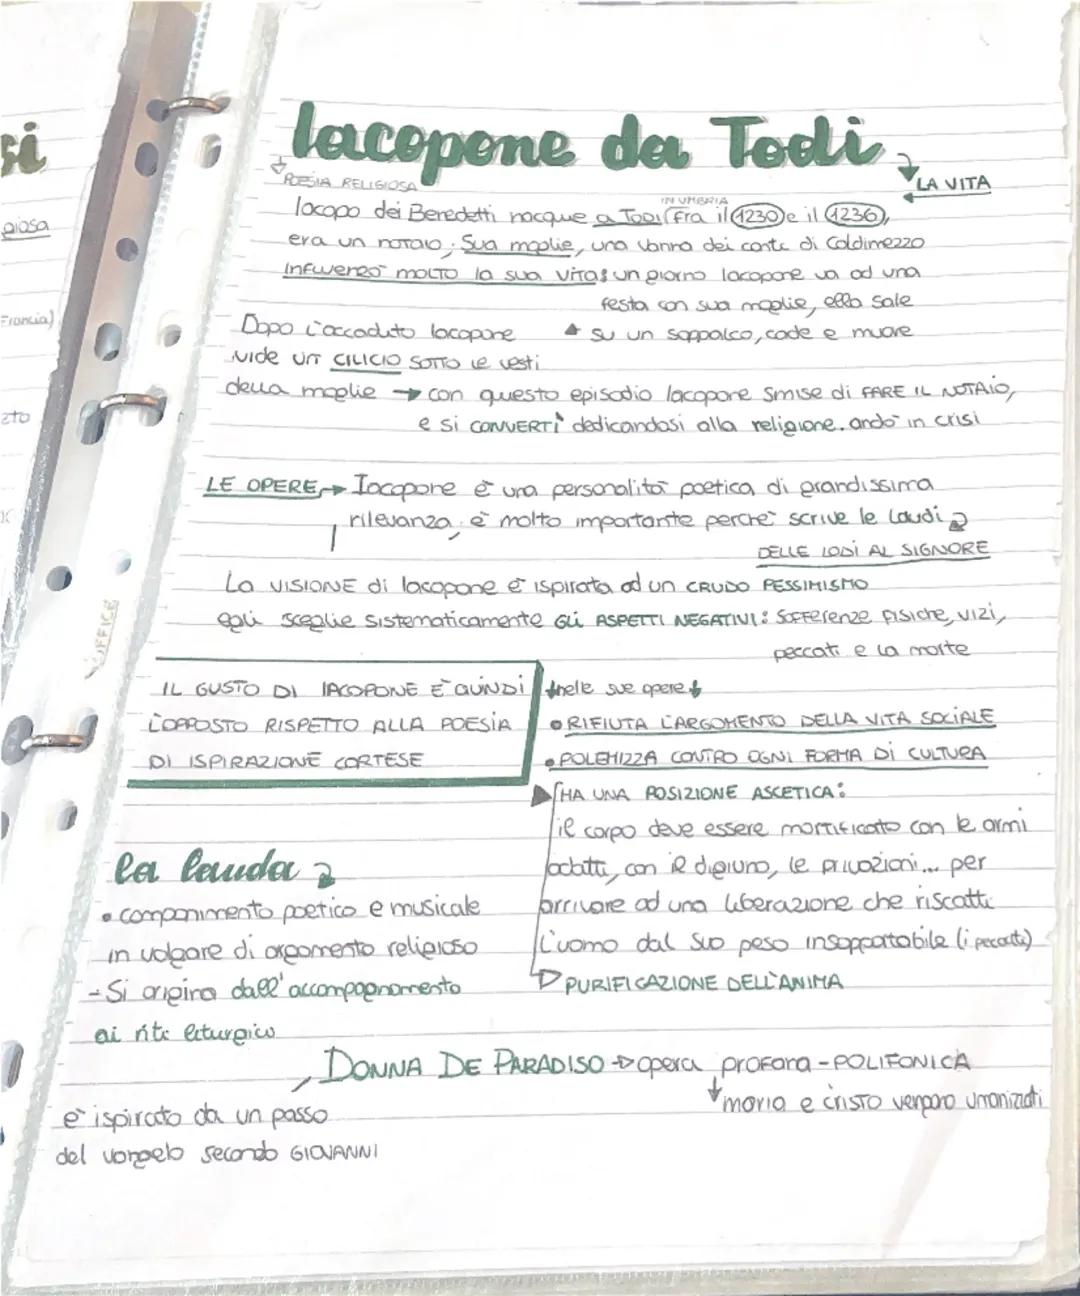 si
giosa
Francia)
zto
Iacopone da Todi
LA VITA
POESIA RELIGIOSA
IN UMBRIA
Iacopo dei Benedetti nacque a TODI (Fra il 1230 e il 1236),
era un notaio. Sua moglie, una Vanna dei conti di Coldimezzo
INFLUENZÒ MOLTO la sua vita: un giorno Iacopone va ad una
festa con sua moglie, ella sale
su un soppalco, cade e muore
Dopo l'accaduto Iacopone
vide un CILICIO SOTTO le vesti
della moglie → con questo episodio Iacopone smise di FARE IL NOTAIO,
e si CONVERTÌ dedicandosi alla religione. andò in crisi
LE OPERE → Iacopone è una personalità poetica di grandissima
rilevanza, è molto importante perchè scrive le laudi
DELLE LODI AL SIGNORE
La VISIONE di Iacopone è ispirata ad un CRUDO PESSIMISMO
egli sceglie sistematicamente GLI ASPETTI NEGATIVI: sofferenze fisiche, vizi,
peccati e la morte
IL GUSTO DI IACOPONE È QUINDI
L'OPPOSTO RISPETTO ALLA POESIA
DI ISPIRAZIONE CORTESE
nelle sue opere
• RIFIUTA L'ARGOMENTO DELLA VITA SOCIALE
• POLEMIZZA CONTRO OGNI FORMA DI CULTURA
HA UNA POSIZIONE ASCETICA:
il corpo deve essere mortificato con le armi
adatti, con il digiuno, le privazioni... per
arrivare ad una liberazione che riscatti
l'uomo dal suo peso insopportabile (i peccati)
PURIFICAZIONE DELL'ANIMA
la lauda
• componimento poetico e musicale
in volgare di argomento religioso
- Si origina dall'accompagnamento
ai riti liturgico
DONNA DE PARADISO → opera profana - POLIFONICA
maria e cristo vengono umanizzati
è ispirato da un passo
del vangelo secondo GIOVANNI
OFFICE